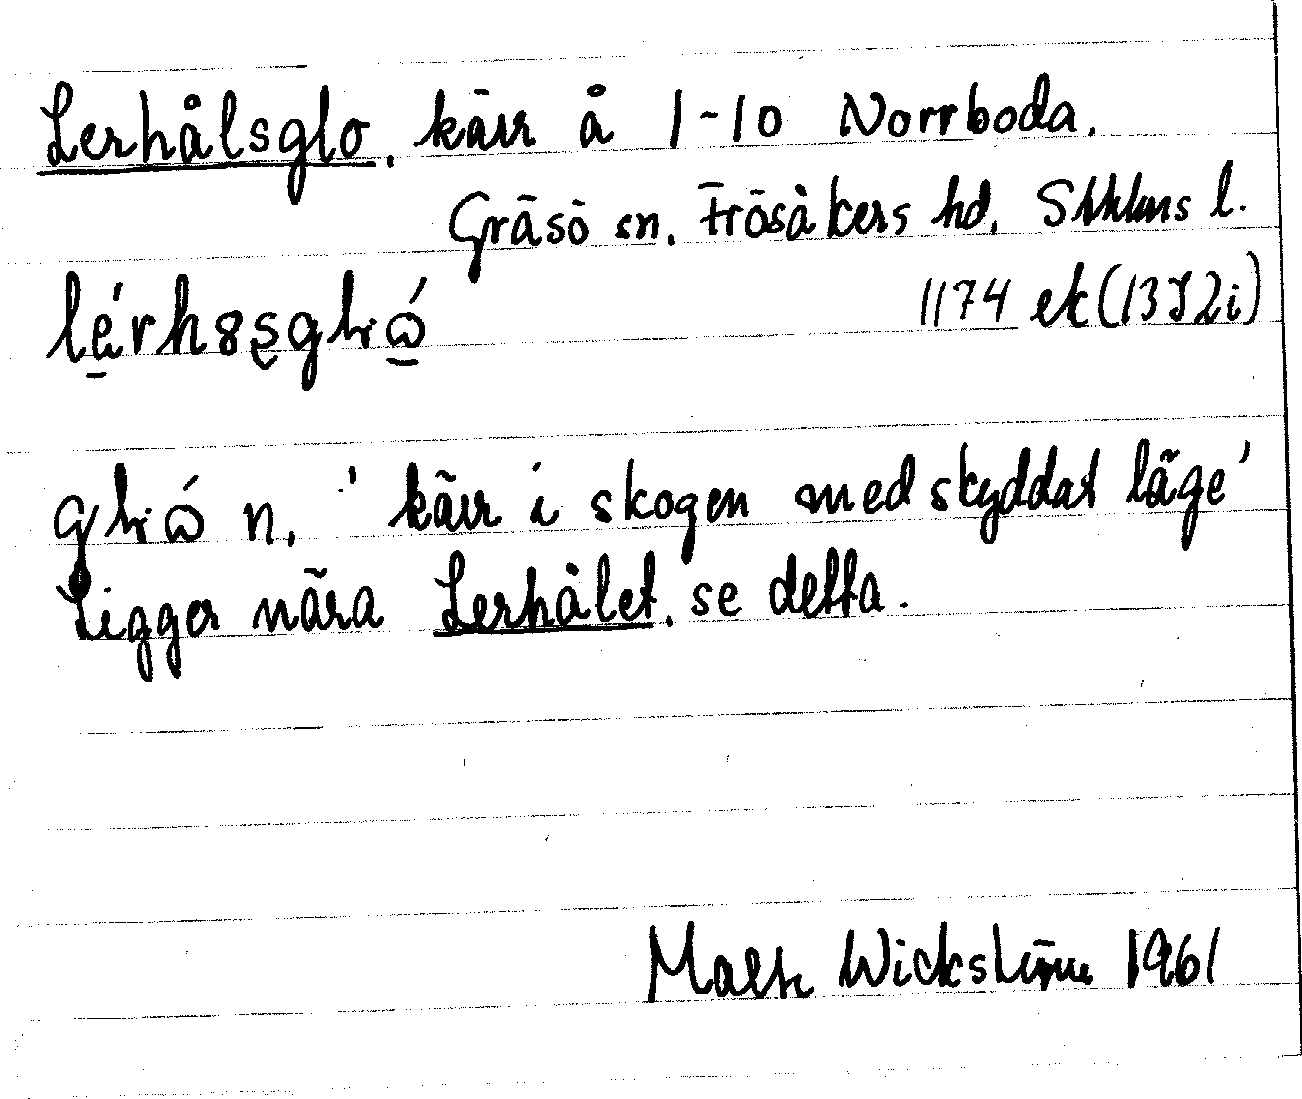 Lerhålsglo, kärr å 1-10 Norrboda.
Gräsö sn, Frösåkers hd, Sthlms l.
1174 ek (13I2i)
n, 'kärr i skogen med skyddat läge'
Ligger nära Lerhålet, se detta.
Wickström 1961